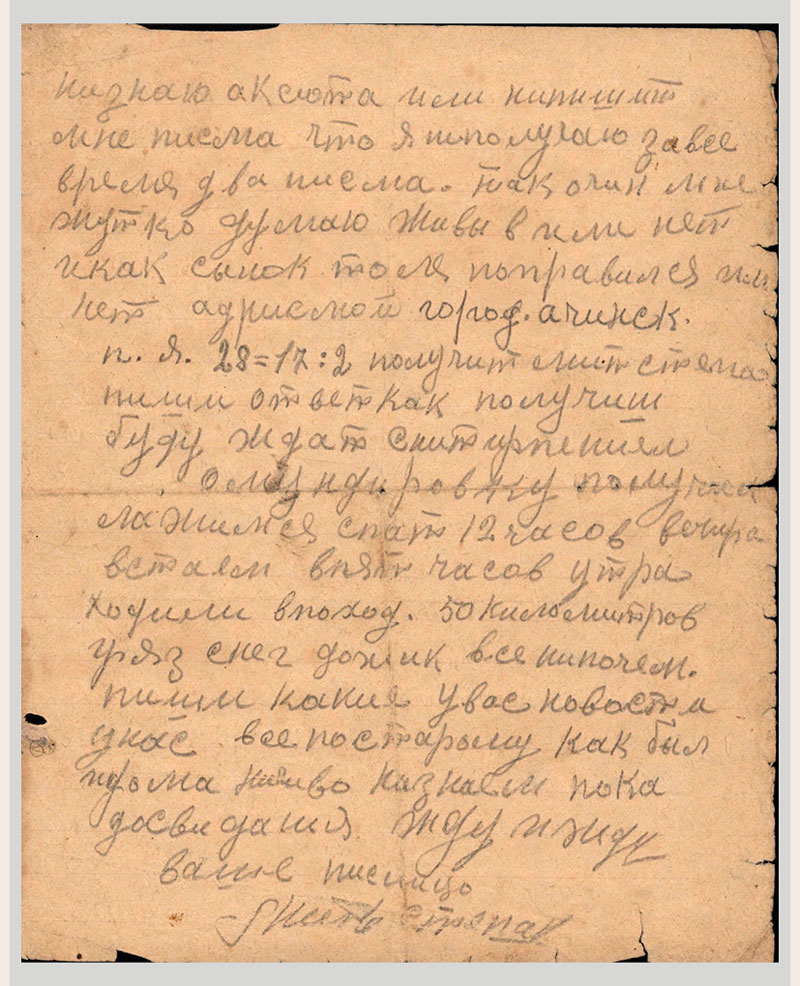 незнаю аксюта или нипишит
мне писма что я неполучаю завсе
время два писма. так очин мне
жутко думаю живы в или нет
икак сынок толя поправился или
нет адрисмой город. ачинск.
п. я. 28=17:2 получит
пиши ответ как получиш
буду ждат снитирпением
омундировку получили
ложимся спат 12 часов вечира
встаем впят часов утра
ходили впоход. 50 километров
гряз снег дожик все нипочем.
пиши какие увас новости
унас все постарому как был
дома незнаем пока
досвидания жду и жду
ваше писмецо